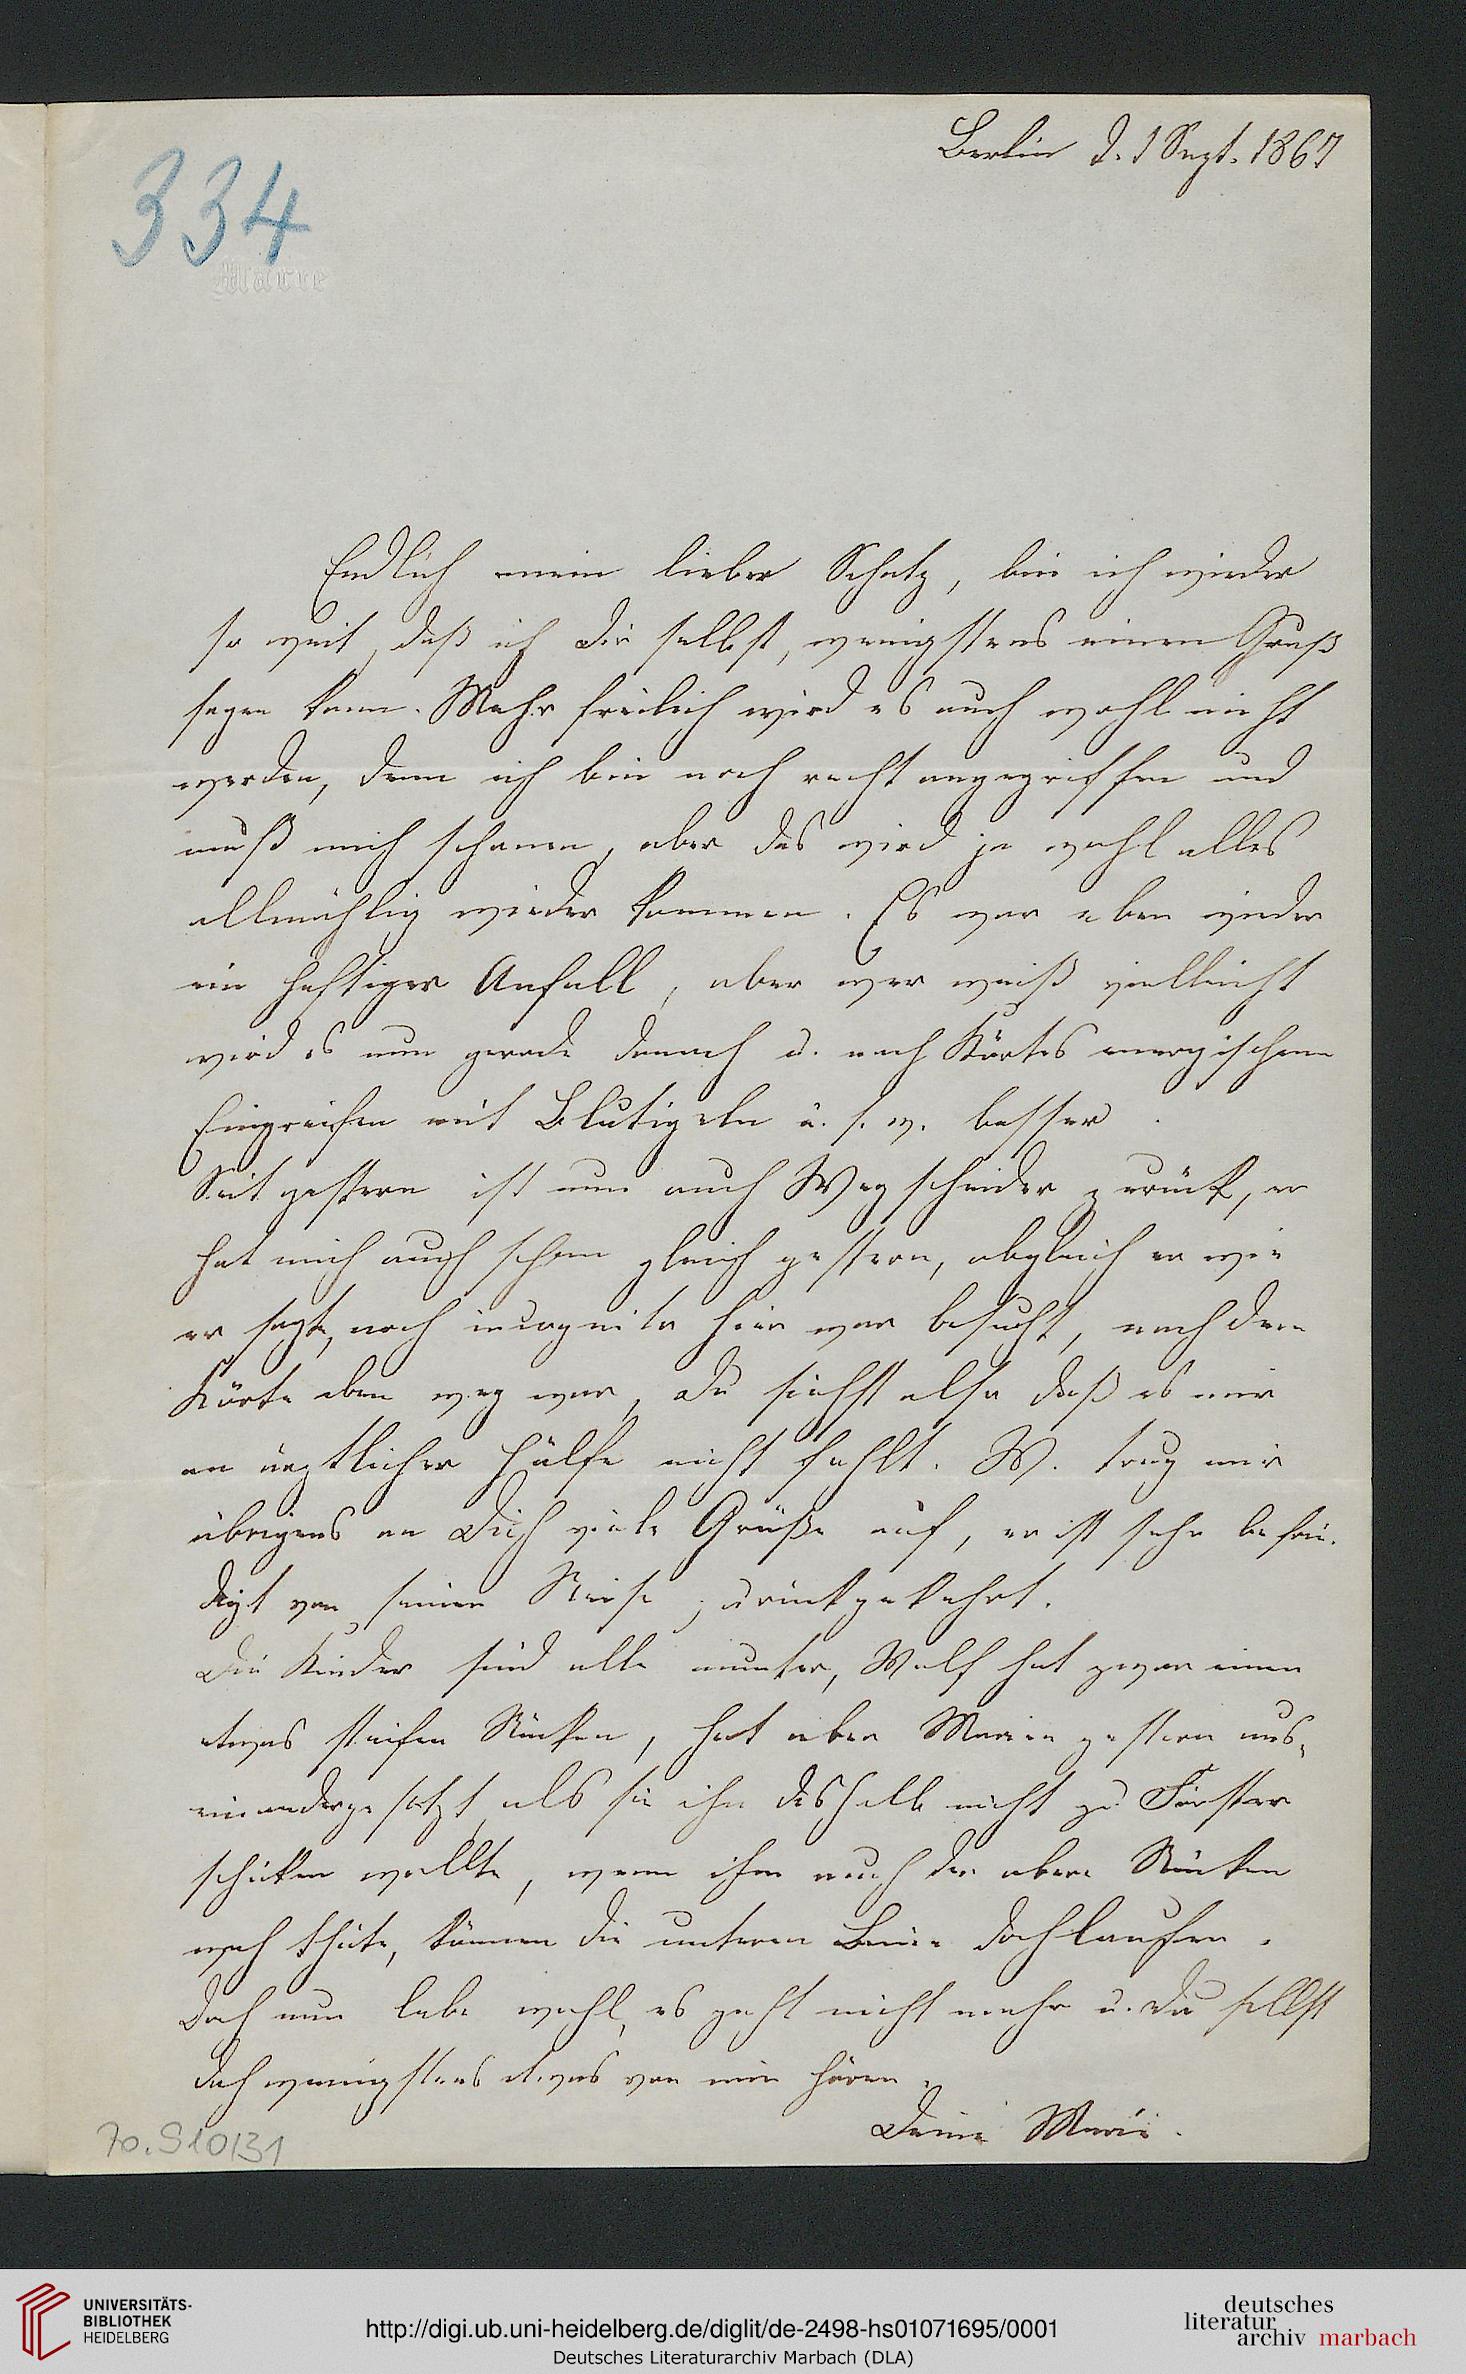 Berlin d. 1 Sept. 1867
334
Marie
Endlich mein lieber Schatz, bin ich wieder
so weit, daß ich Dir selbst, wenigstens einen Gruß
sagen kann. Mehr freilich wird es auch wohl nicht
werden, denn ich bin noch recht angegriffen und
muß mich schonen, aber das wird ja wohl alles
allmählig wieder kommen. Es war eben wieder
ein heftiger Anfall, aber wer weiß vielleicht
wird es nun gerade danach u. nach Körtes energischem
Eingreifen mit Blutigeln u. s. w. besser.
Seit gestern ist nun auch Wegscheider zurück, er
hat mich auch schon gleich gestern, obgleich er wie
er sagte, noch incognito hier war besucht, nachdem
Körte eben weg war, Du siehst also daß es mir
an ärztlicher Hülfe nicht fehlt. W. trug mir
übrigens an Dich viele Grüße auf, er ist sehr befrie-
digt von seiner Reise zurückgekehrt.
Die Kinder sind alle munter, Wolf hat zwar einen
etwas steifen Rücken, hat aber Marien gestern aus-
einandergesetzt, als sie ihn deshalb nicht zu Förster
schicken wollte, wenn ihm auch der obere Rücken
weh thäte, können die unteren Beine doch laufen.
Doch nun lebe wohl, es geht nicht mehr u. Du sollst
doch wenigstens etwas von mir hören.
Deine Marie.
70.S10131
UNIVERSITÄTS-
BIBLIOTHEK
HEIDELBERG
http://digi.ub.uni-heidelberg.de/diglit/de-2498-hs01071695/0001
Deutsches Literaturarchiv Marbach (DLA)
deutsches
literatur
archiv marbach